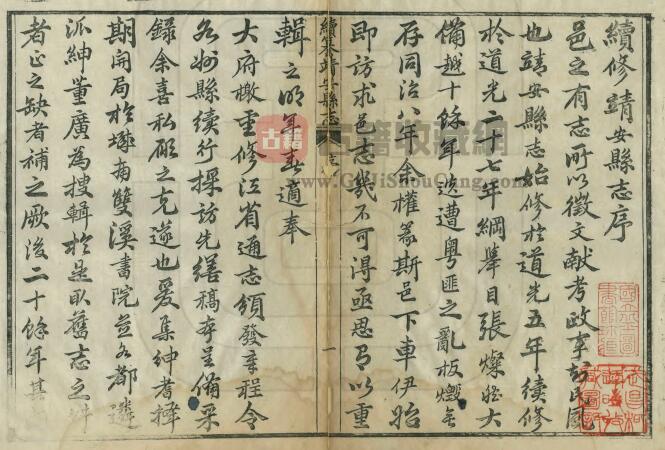 續修靖安縣志序
邑之有志所以徵文獻考政事訪民風
也靖安縣志始修於道光五年續修
於道光二十七年綱舉目張燦然大
備越十餘年迭遭粵匪之亂板燬無
存同治八年余權篆斯邑下車伊始
即訪求邑志幾不可得亟思有以重
續纂靖安縣志
序
一
古籍
古籍收藏网
www.GuJiShouCang.com
輯之明年春適奉
大府檄重修江省通志頒發章程令
各州縣續行採訪先繕稿本呈備采
錄余喜私願之克遂也爰集紳耆擇
期開局於城南雙溪書院並各都遴
派紳董廣為搜輯於是取舊志之
者正之缺者補之厥後二十餘年其